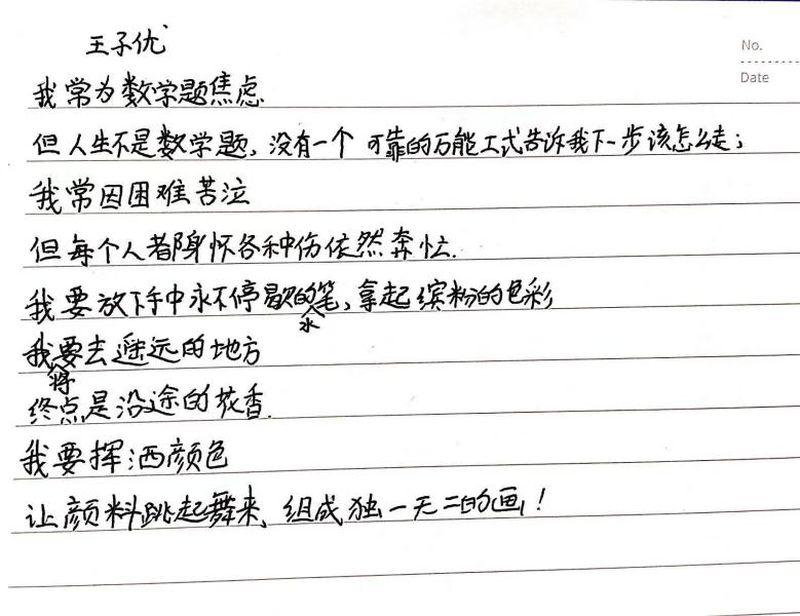 No.
Date
王子优
我常为数学题焦虑
但人生不是数学题，没有一个可靠的万能工式告诉我下一步该怎么走；
我常因困难苦泣
但每个人都身怀各种伤依然奔忙.
我要放下手中永不停歇的水笔，拿起缤纷的色彩
我将要去遥远的地方
终点是沿途的花香.
我要挥洒颜色
让颜料跳起舞来、组成独一无二的画！